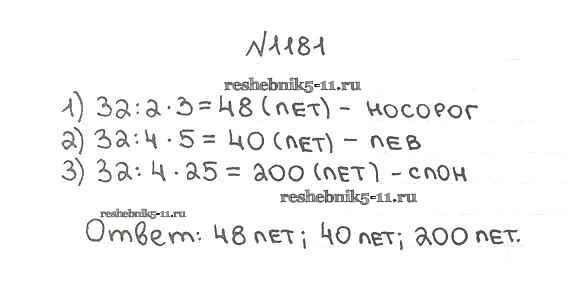 №1181
reshebnik5-11.ru
1) 32:2·3=48 (лет) - носорог
2) 32:4·5=40 (лет) - лев
3) 32:4·25=200 (лет) - слон
reshebnik5-11.ru
reshebnik5-11.ru
Ответ: 48 лет; 40 лет; 200 лет.